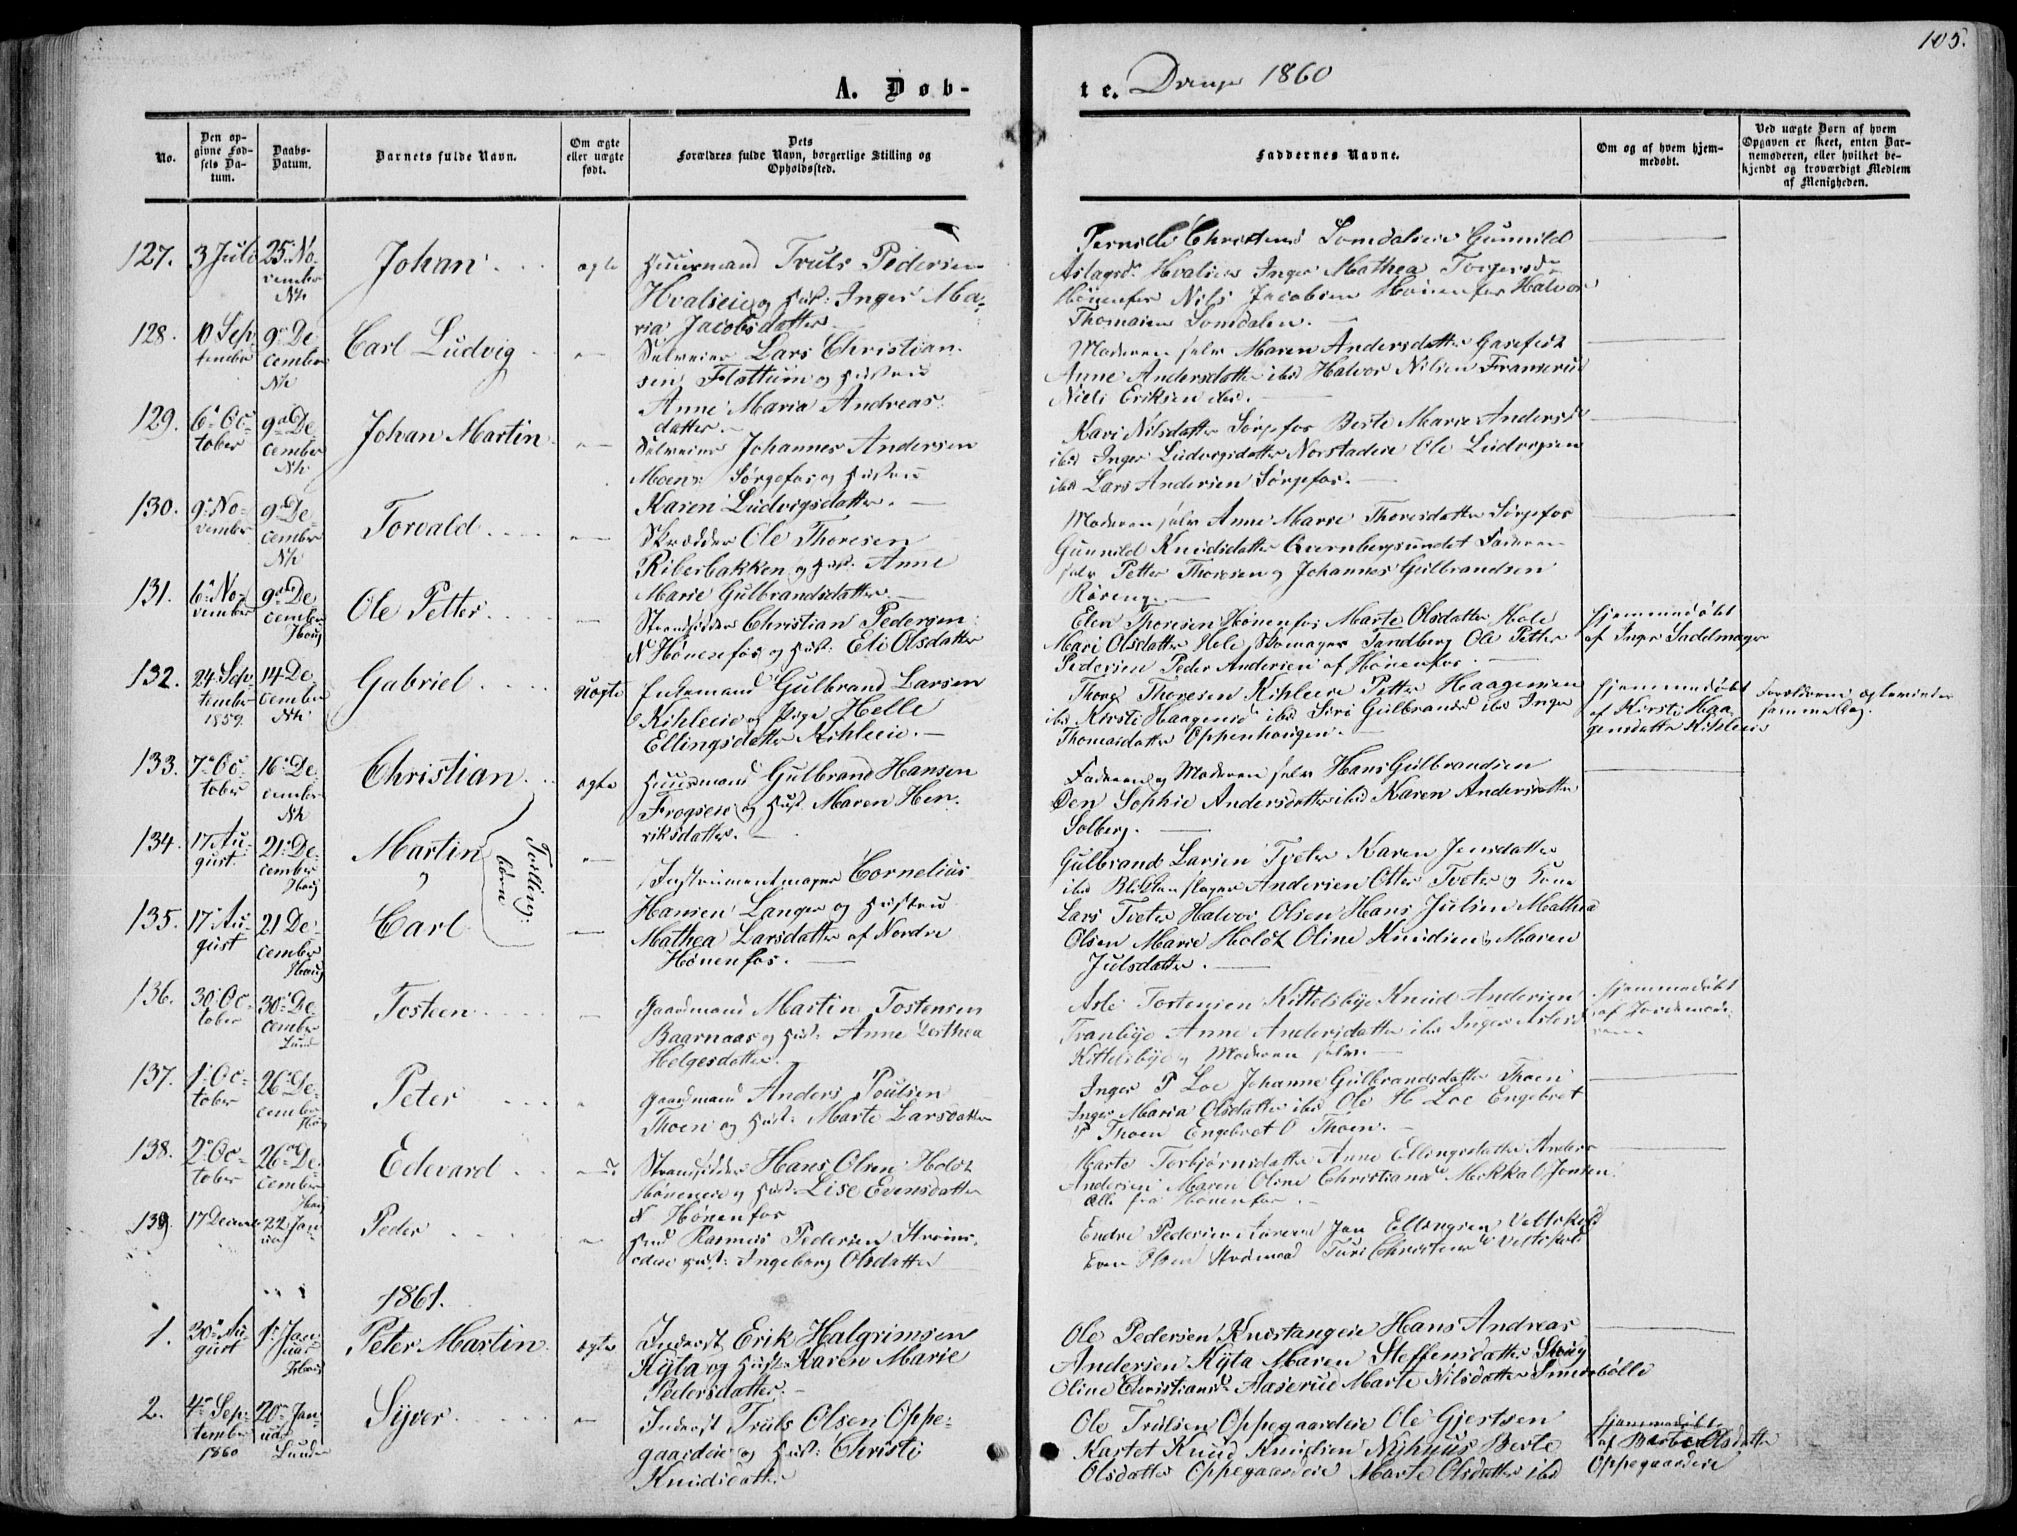 105.
A. Dob-
te. Drenge 1860
No.
Den op-
givne Fød-
sels Da-
tum.
Daabs-
Datum.
Barnets fulde Navn.
Om ægte
eller uægte
født.
Dets
Forældres fulde Navn, borgerlige Stilling og
Opholdssted.
Faddernes Navne.
Om og af hvem hjem-
medøbt.
Ved uægte Børn af hvem
Opgaven er skeet, enten Bar-
nemoderen, eller hvilket be-
kjendt og troværdigt Medlem
af Menigheden.
127. 3 Juli 25 No-
vember
Nh
Johan
ægte
Huusmand Truls Pedersen
Hvalseie og Hust: Inger Ma-
ria Jacobsdatter
Pernille Christensd Somdaleie Gunnild
Aslagsd Inger Mathea Torgersd
Hønenfos Nils Jacobsen Hønenfos Halvor
Thomasen Somdalen.
128. 10 Sep-
tember
9 De-
cember
Nh
Carl Ludvig
Selveier Lars Christian-
sen Flattum og Hustru
Anne Maria Andreas-
datter
Moderen selv Maren Andersdatter
Anne Andersdatter ibid Halvor Nilsen Franserud
Niels Eriksen ibid.
129. 6 Oc-
tober
9de De-
cember
Nh
Johan Martin
Selveier Johannes Andersen
Moen Sørgefos og Hustru
Karen Ludvigsdatter.
Kari Nilsdatter Sørgefos Berte Marie Andersd
ibid Inger Ludvigsdatter Norstadeie Ole Ludvigsen
ibid Lars Andersen Sørgefos.
130. 9 No-
vember
9de De-
cember
Nh
Torvald
Skrædder Ole Thoresen
Riberbakken og Hust: Anne
Marie Gulbrandsdatter
Moderen selv Anne Marie Thoresdatter Sørgefos
Gunnild Knudsdatter Qvernbergsundet Faderen
selv Petter Thoresen og Johannes Gulbrandsen
131. 6 No-
vember
9de De-
cember
Haug
Ole Petter
Strandsidder Christian Pedersen
N Hønenfos og Hust: Eli Olsdatter
Elen Thoresen Hønenfos Marte Olsdatter Hole
Mari Olsdatter Hole Skomager Tandberg Ole Petter
Pedersen Peder Andersen af Hønenfos.
Hjemmedøbt
af Inger Sadelmager
132. 24 Sep-
tember
1859.
14 De-
cember
Nh
Gabriel
uægte
Enkemand Gulbrand Larsen
Kihleeie og Pige Helle
Ellingsdatter Kihleeie.
Thore Thoresen Kihleeie Petter Haagensen
ibid Kirsti Haagensd ibid Siri Gulbrandsd ibid Inger
Thomasdatter Oppenhaugen.
Hjemmedøbt
af Kirsti Haa-
gensdatter Kihleeie
Forældrene
samme Dag.
133. 7 Oc-
tober
16 De-
cember
Nh
Christian
ægte
Huusmand Gulbrand Hansen
Frogseie og Hust. Maren Hen-
riksdatter.
Faderen og Moderen selv Hans Gulbrandsen
Sophie Andersdatter ibid Karen Andersdatter
Solberg.
134. 17 Au-
gust
21 De-
cember
Haug
Martin
og
Tvilling-
børn
Instrumentmager Cornelius
Hansen Lange og Hustru
Mathea Larsdatter af Nordre
Hønenfos.
Gulbrand Larsen Tveter Karen Jensdatter
ibid Blikkenslager Andersen Otter Tveter og Kone
Lars Tveter Halvor Olsen Hans Julsen Mathea
Olsen Marie Holdt Oline Knudsen Maren
Julsdatter.
135. 17 Au-
gust
21 De-
cember
Haug
Carl
136. 30 Oc-
tober
30 De-
cember
Lund
Tosteen
Gaardmand Martin Tostensen
Baarnaas og Hust: Anne Dorthea
Helgesdatter.
Asle Tostensen Kittelsbye Knud Andersen
Tranbye Anne Andersdatter ibid Inger Aslesd
Kittelsbye og Moderen selv.
Hjemmedøbt
af Jordemode-
ren
137. 1 Oc-
tober
26 De-
cember
Haug
Peter
Gaardmand Anders Poulsen
Thoen og Hust: Marte Larsdatter
Inger P Loe Johanne Gulbrandsdatter Thoen
Inger Maria Olsdatter ibid Ole H Loe Engebret
P Thoen Engebret O Thoen.
138. 2 Oc-
tober
26 De-
cember
Haug
Edevard
Strandsidder Hans Olsen Holdt
Høneneie og Hust: Lise Evensdatter
N Hønenfos
Marte Torbjørnsdatter Anne Ellingsdatter Anders
Andersen Maren Oline Christiansd Mikkal Jonsen
alle fra Hønenfos.
139. 17 Decemb 22 Jan-
uar
Peder
Rasmus Pedersen Strøms-
odeie Hust: Ingeborg Olsdatter
Endre Pedersen Jan Ellingsen
Even Olsen Turi Christensd
1861.
1. 30 Au-
gust
1 Jan-
uar
Haug
Peter Martin
ægte
Inderst Erik Halgrimsen
Hyta og Hustr Karen Marie
Pedersdatter.
Ole Pedersen Knestangeie Hans Andreas
Andersen Hyta Maren Steffensdatter
Oline Christiansd Aaserud Marte Nilsdatter
2. 4 Sep-
tember
1860
20 Jan-
uar
Lunder
Syver
Inderst Truls Olsen Oppe-
gaardeie og Hust: Christi
Knudsdatter
Ole Trulsen Oppegaardeie Ole Gjertsen
Knud Knudsen Nyhuus Berte
Olsdatter Oppegaardeie Marte Olsdatter ibid
Hjemmedøbt
af Olsdatter
Oppegaardeie